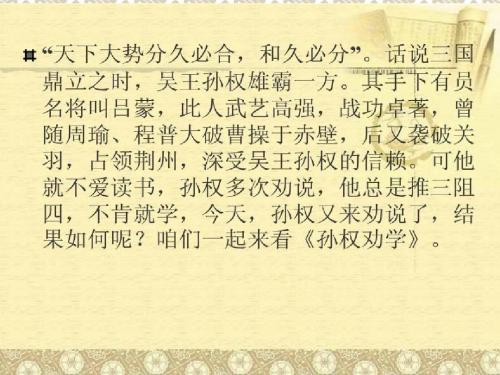 “天下大势分久必合，和久必分”。话说三国
鼎立之时，吴王孙权雄霸一方。其手下有员
名将叫吕蒙，此人武艺高强，战功卓著，曾
随周瑜、程普大破曹操于赤壁，后又袭破关
羽，占领荆州，深受吴王孙权的信赖。可他
就不爱读书，孙权多次劝说，他总是推三阻
四，不肯就学，今天，孙权又来劝说了，结
果如何呢？咱们一起来看《孙权劝学》。